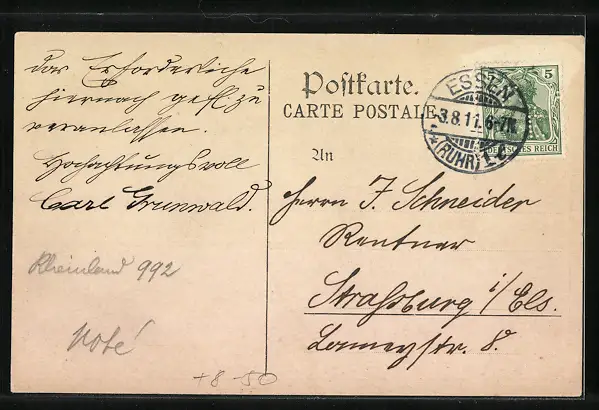 das Erforderliche
hiernach gefl. zu
veranlassen.
Hochachtungsvoll
Carl Grunwald.
Rheinland 992
Noté
+8 50
Postkarte.
CARTE POSTALE
An
Herrn J. Schneider
Rentner
Straßburg i/Els.
Lameystr. 8.
ESSEN
3.8.11. 6-7N.
(RUHR) 1
5
DEUTSCHES REICH